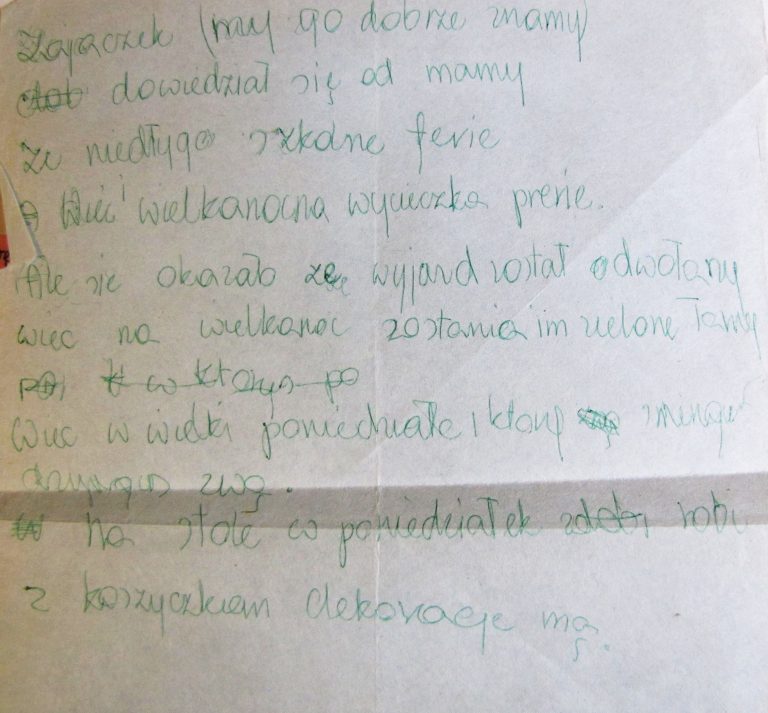 Zajączek (my go dobrze znamy)
dowiedział się od mamy
że niedłygo szkolne ferie
Więc wielkanocna wycieczka prerie.
Ale sie okazało że wyjazd został odwołany
więc na wielkanoc zostanią im zielone łamy
w którys po
Więc w wielki poniedziałe i który
zwą.
Na stole w poniedziałek robi
z koszyczkiem dekoracje mą.